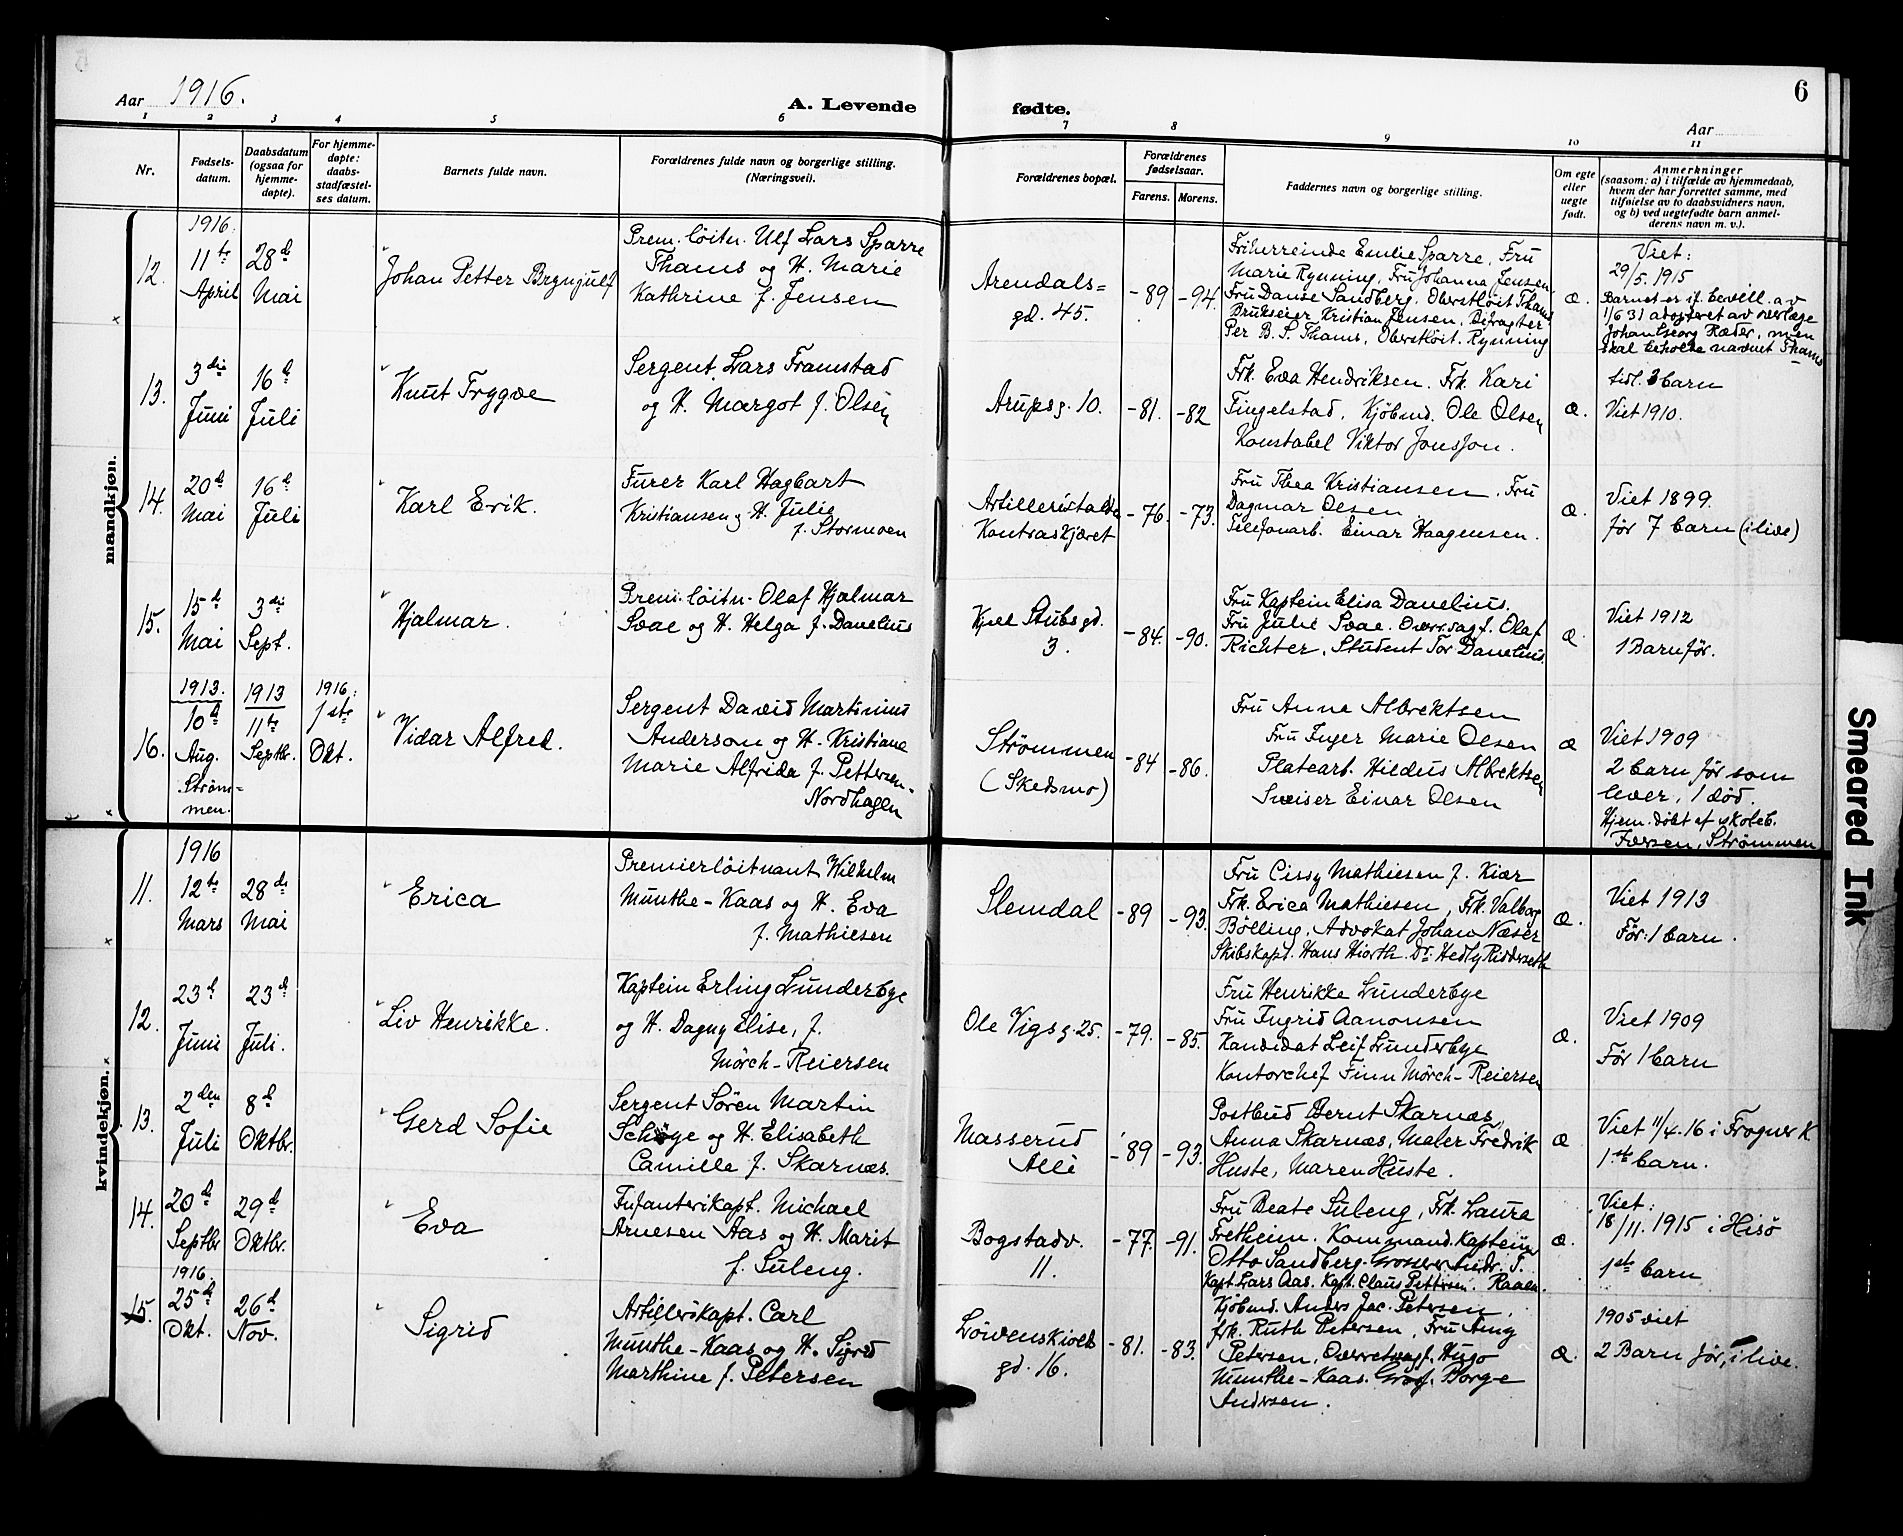 Aar 1916.
A. Levende fødte.
6
Aar
1 2 3 4 5 6 7 8 9 10 11
Nr.
Fødsels-
datum.
Daabsdatum
(ogsaa for
hjemme-
døpte).
For hjemme-
døpte:
daabs-
stadfæstel-
ses datum.
Barnets fulde navn.
Forældrenes fulde navn og borgerlige stilling.
(Næringsvei).
Forældrenes bopæl.
Forældrenes
fødselsaar.
Farens. Morens.
Faddernes navn og borgerlige stilling.
Om egte
eller
uegte
født.
Anmerkninger
(saasom: a) i tilfælde av hjemmedaab,
hvem der har forrettet samme, med
tilføielse av to daabsvidners navn,
og b) ved uegtefødte barn anmel-
derens navn m. v.).
mandkjøn.
12.
1916.
11te
April
28d
Mai
Johan Petter Brynjulf
Prem. löitn. Ulf Lars Sparre
Thams og H. Marie
Kathrine f. Jensen
Arendals=
gd. 45.
-89
-94.
Friherreinde Emilie Sparre, Fru
Marie Rynning, Fru Johanna Jensen,
Fru Danse Sandberg. Oberstløit Thams
Brukseier Kristian Jensen,
Per B. S. Thams, Oberstløit. Rynning
æ.
Viet:
29/5. 1915
Barnet er if. bevill. av
1/6 31 adopteret av overlæge
Johan Georg Ræder, men
skal beholde navnet Thams
13.
3die
Juni
16d
Juli
Knut Tryggve
Sergent. Lars Framstad
og H. Margot f. Olsen
Arupsg. 10.
-81.
-82
Frk. Eva Hendriksen. Frk. Kari
Tingelstad, Kjøbmd. Ole Olsen
Konstabel Viktor Jonsson.
æ.
tidl. 3 barn
Viet 1910.
14.
20d
Mai
16d
Juli
Karl Erik.
Furer Karl Hagbart
Kristiansen og H. Julie
f. Stormoen
Artilleristalde
Kontraskjæret
-76.
-73.
Fru Thea Kristiansen. Fru
Dagmar Olsen
Telefonarb. Einar Haagensen.
æ.
Viet 1899.
før 7 barn (ilive)
15.
15d
Mai
3die
Sept.
Hjalmar.
Prem. løitn. Olaf Hjalmar
Svae og H. Helga f. Danelius
Kjel Stubsgd.
3.
-84.
-90.
Fru Kaptein Elisa Danelius.
Fru Julie Svae. Overr.sagf. Olaf
Richter, Student Tor Danelius.
æ
Viet 1912
1 Barn før.
16.
1913.
10d
Aug.
Strøm-
men.
1913
11te
Septbr.
1916:
1ste
Okt.
Vidar Alfred.
Sergent David Martinius
Anderson og H. Kristiane
Marie Alfrida f. Pettersen-
Nordhagen
Strømmen
(Skedsmo)
-84
-86.
Fru Anne Albrektsen
Fru Inger Marie Olsen
Platearb. Hildus Albrektsen
Sveiser Einar Olsen
æ
Viet 1909
2 barn før som
lever, 1 død.
Hjem. døbt af skoleb.
Iversen, Strømmen
kvindekjøn.
11.
1916
12te
Mars
28de
Mai
Erica
Premierløitnant Wilhelm
Munthe-Kaas og H. Eva
f. Mathiesen
Slemdal
-89
-93.
Fru Cissy Mathiesen f. Kiær
Frk. Erica Mathiesen, Frk. Valborg
Bölling, Advokat Johan Næser
Skibskapt. Hans Hiorth. Dr. Hedly Ridderseth
æ.
Viet 1913
Før: 1 barn.
12.
23d
Juni
23d
Juli.
Liv Henrikke.
Kaptein Erling Lunderbye
og H. Dagny Elise, f.
Mörch-Reiersen
Ole Vigsg. 25.
-79.
-85.
Fru Henrikke Lunderbye
Fru Ingrid Aanonsen
Kandidat Leif Lunderbye
Kontorchef Finn Mörch-Reiersen
æ.
Viet 1909
Før 1 barn
13.
2den
Juli
8d
Oktbr.
Gerd Sofie
Sergent Sören Martin
Schøye og H. Elisabeth
Camille f. Skarnæs.
Masserud
Alle
-89
-93.
Postbud Bernt Skarnæs,
Anna Skarnæs, Maler Fredrik
Huste, Maren Huste.
æ
Viet 11/4. 16 i Frogner K
1ste barn.
14.
20d
Septbr
29d
Oktbr.
Eva
Infanterikapt. Michael
Arnesen Aas og H. Marit
f. Suleng.
Bogstadv.
11.
-77.
-91.
Fru Beate Suleng, Frk. Laura
Fretheim. Kommand.kaptein
Otto Sandberg. Grosserer Andr. S.
Kapt. Lars Aas. Kapt. Claus Pettersen. Raaen.
æ.
Viet:
18/11. 1915 i Hisö
1ste barn
15.
1916.
25d
Okt.
26d
Nov.
Sigrid
Artillerikapt. Carl
Munthe-Kaas og H. Sigrid
Marthine f. Petersen
Løvenskiolds
gd. 16.
-81.
-83.
Kjøbmd. Anders Jac. Petersen,
frk. Ruth Petersen, Fru Amy
Petersen, Overretssagf. Hugo
Munthe-Kaas. Gross. Borge
Andersen.
æ.
1905 viet
2 Barn før, ilive.
Smeared Ink